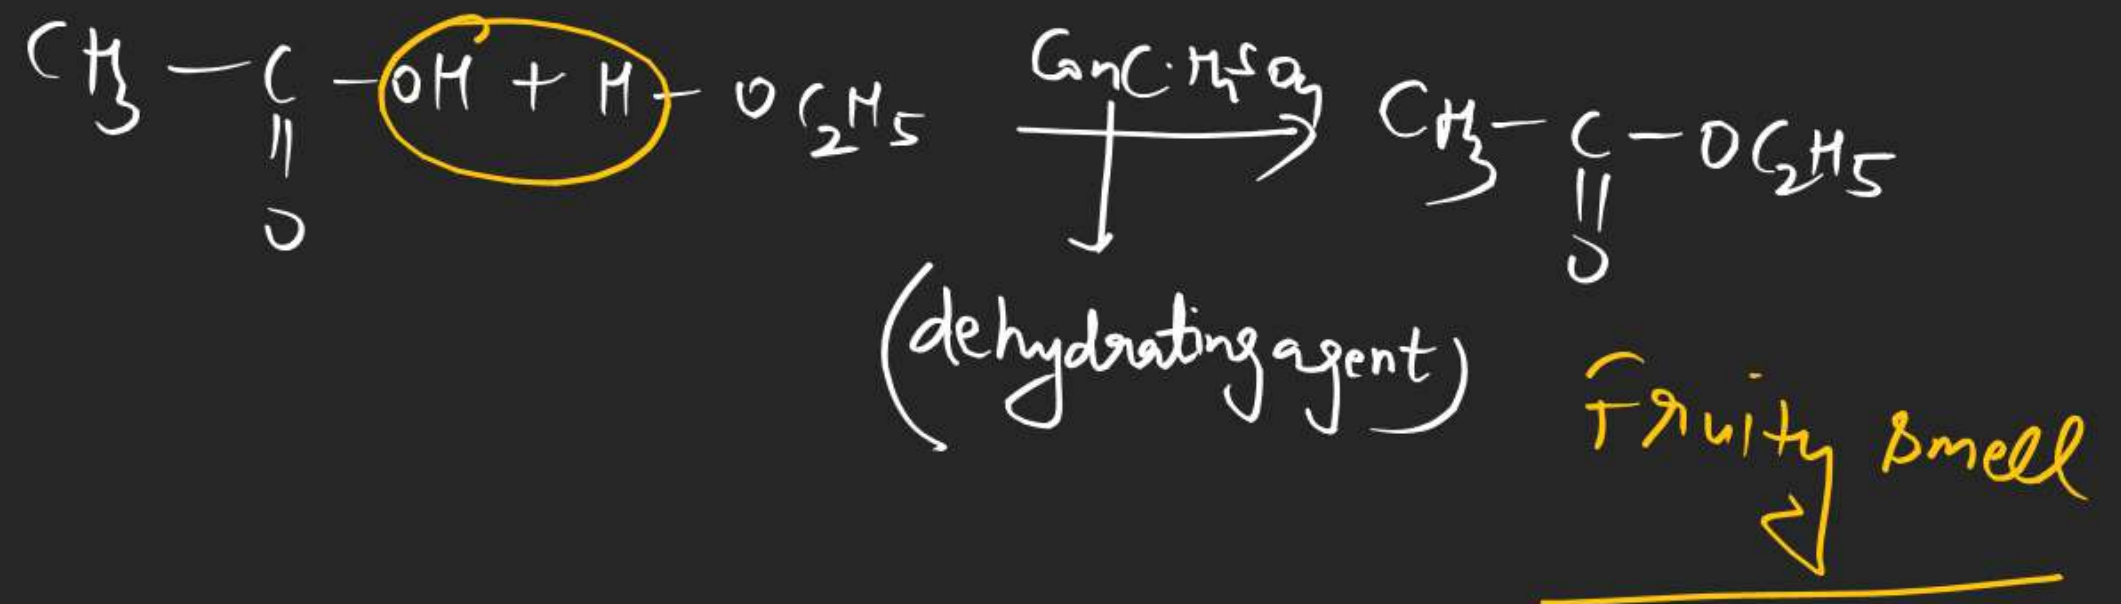 CH₃ — C — OH + H — OC₂H₅ Conc. H₂SO₄ CH₃ — C — OC₂H₅
|| ||
O O
(dehydrating agent)
Fruity smell